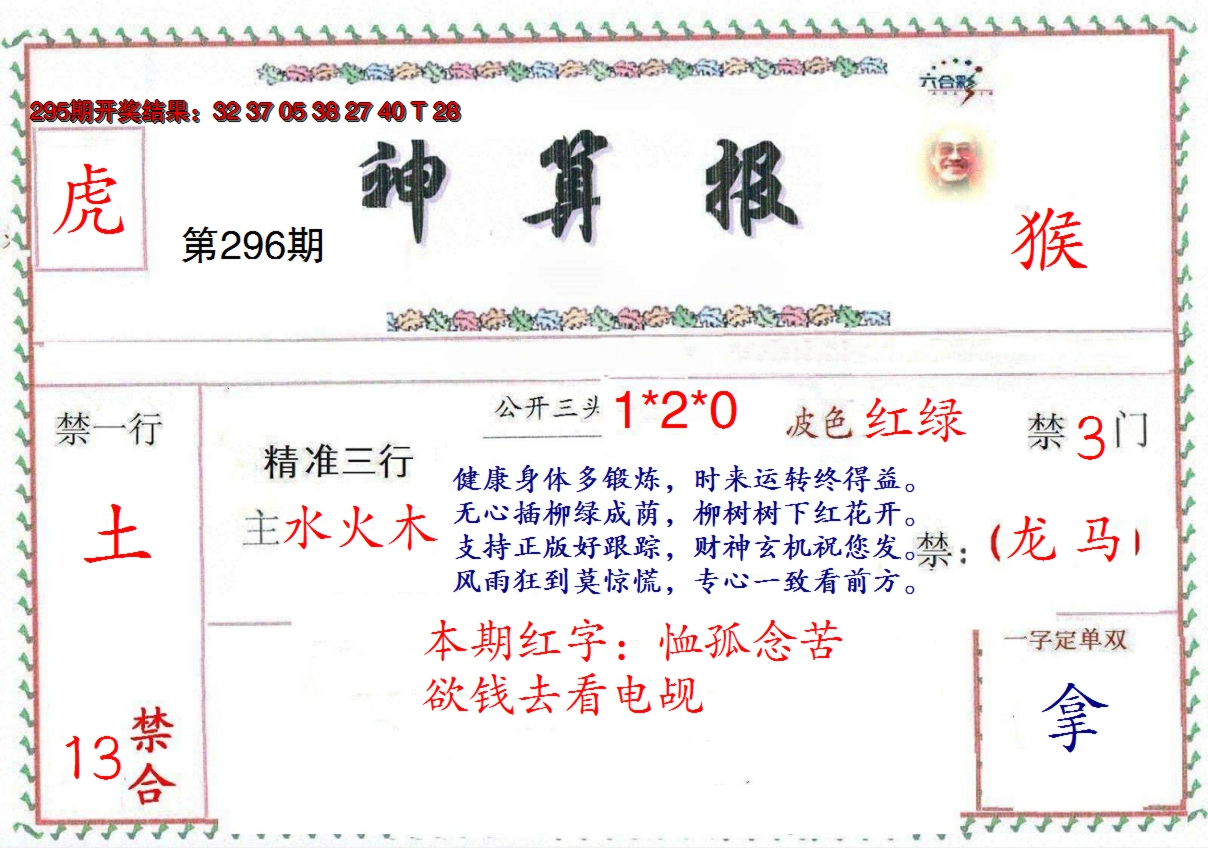 六合彩
295期开奖结果：32 37 05 38 27 40 T 28
神算报
虎
第296期
猴
禁一行
土
13
禁合
精准三行
主水火木
公开三头 1*2*0
波色 红绿
禁3门
健康身体多锻炼，时来运转终得益。
无心插柳绿成荫，柳树树下红花开。
支持正版好跟踪，财神玄机祝您发。
风雨狂到莫惊慌，专心一致看前方。
禁：（龙 马）
本期红字：恤孤念苦
欲钱去看电觇
一字定单双
拿